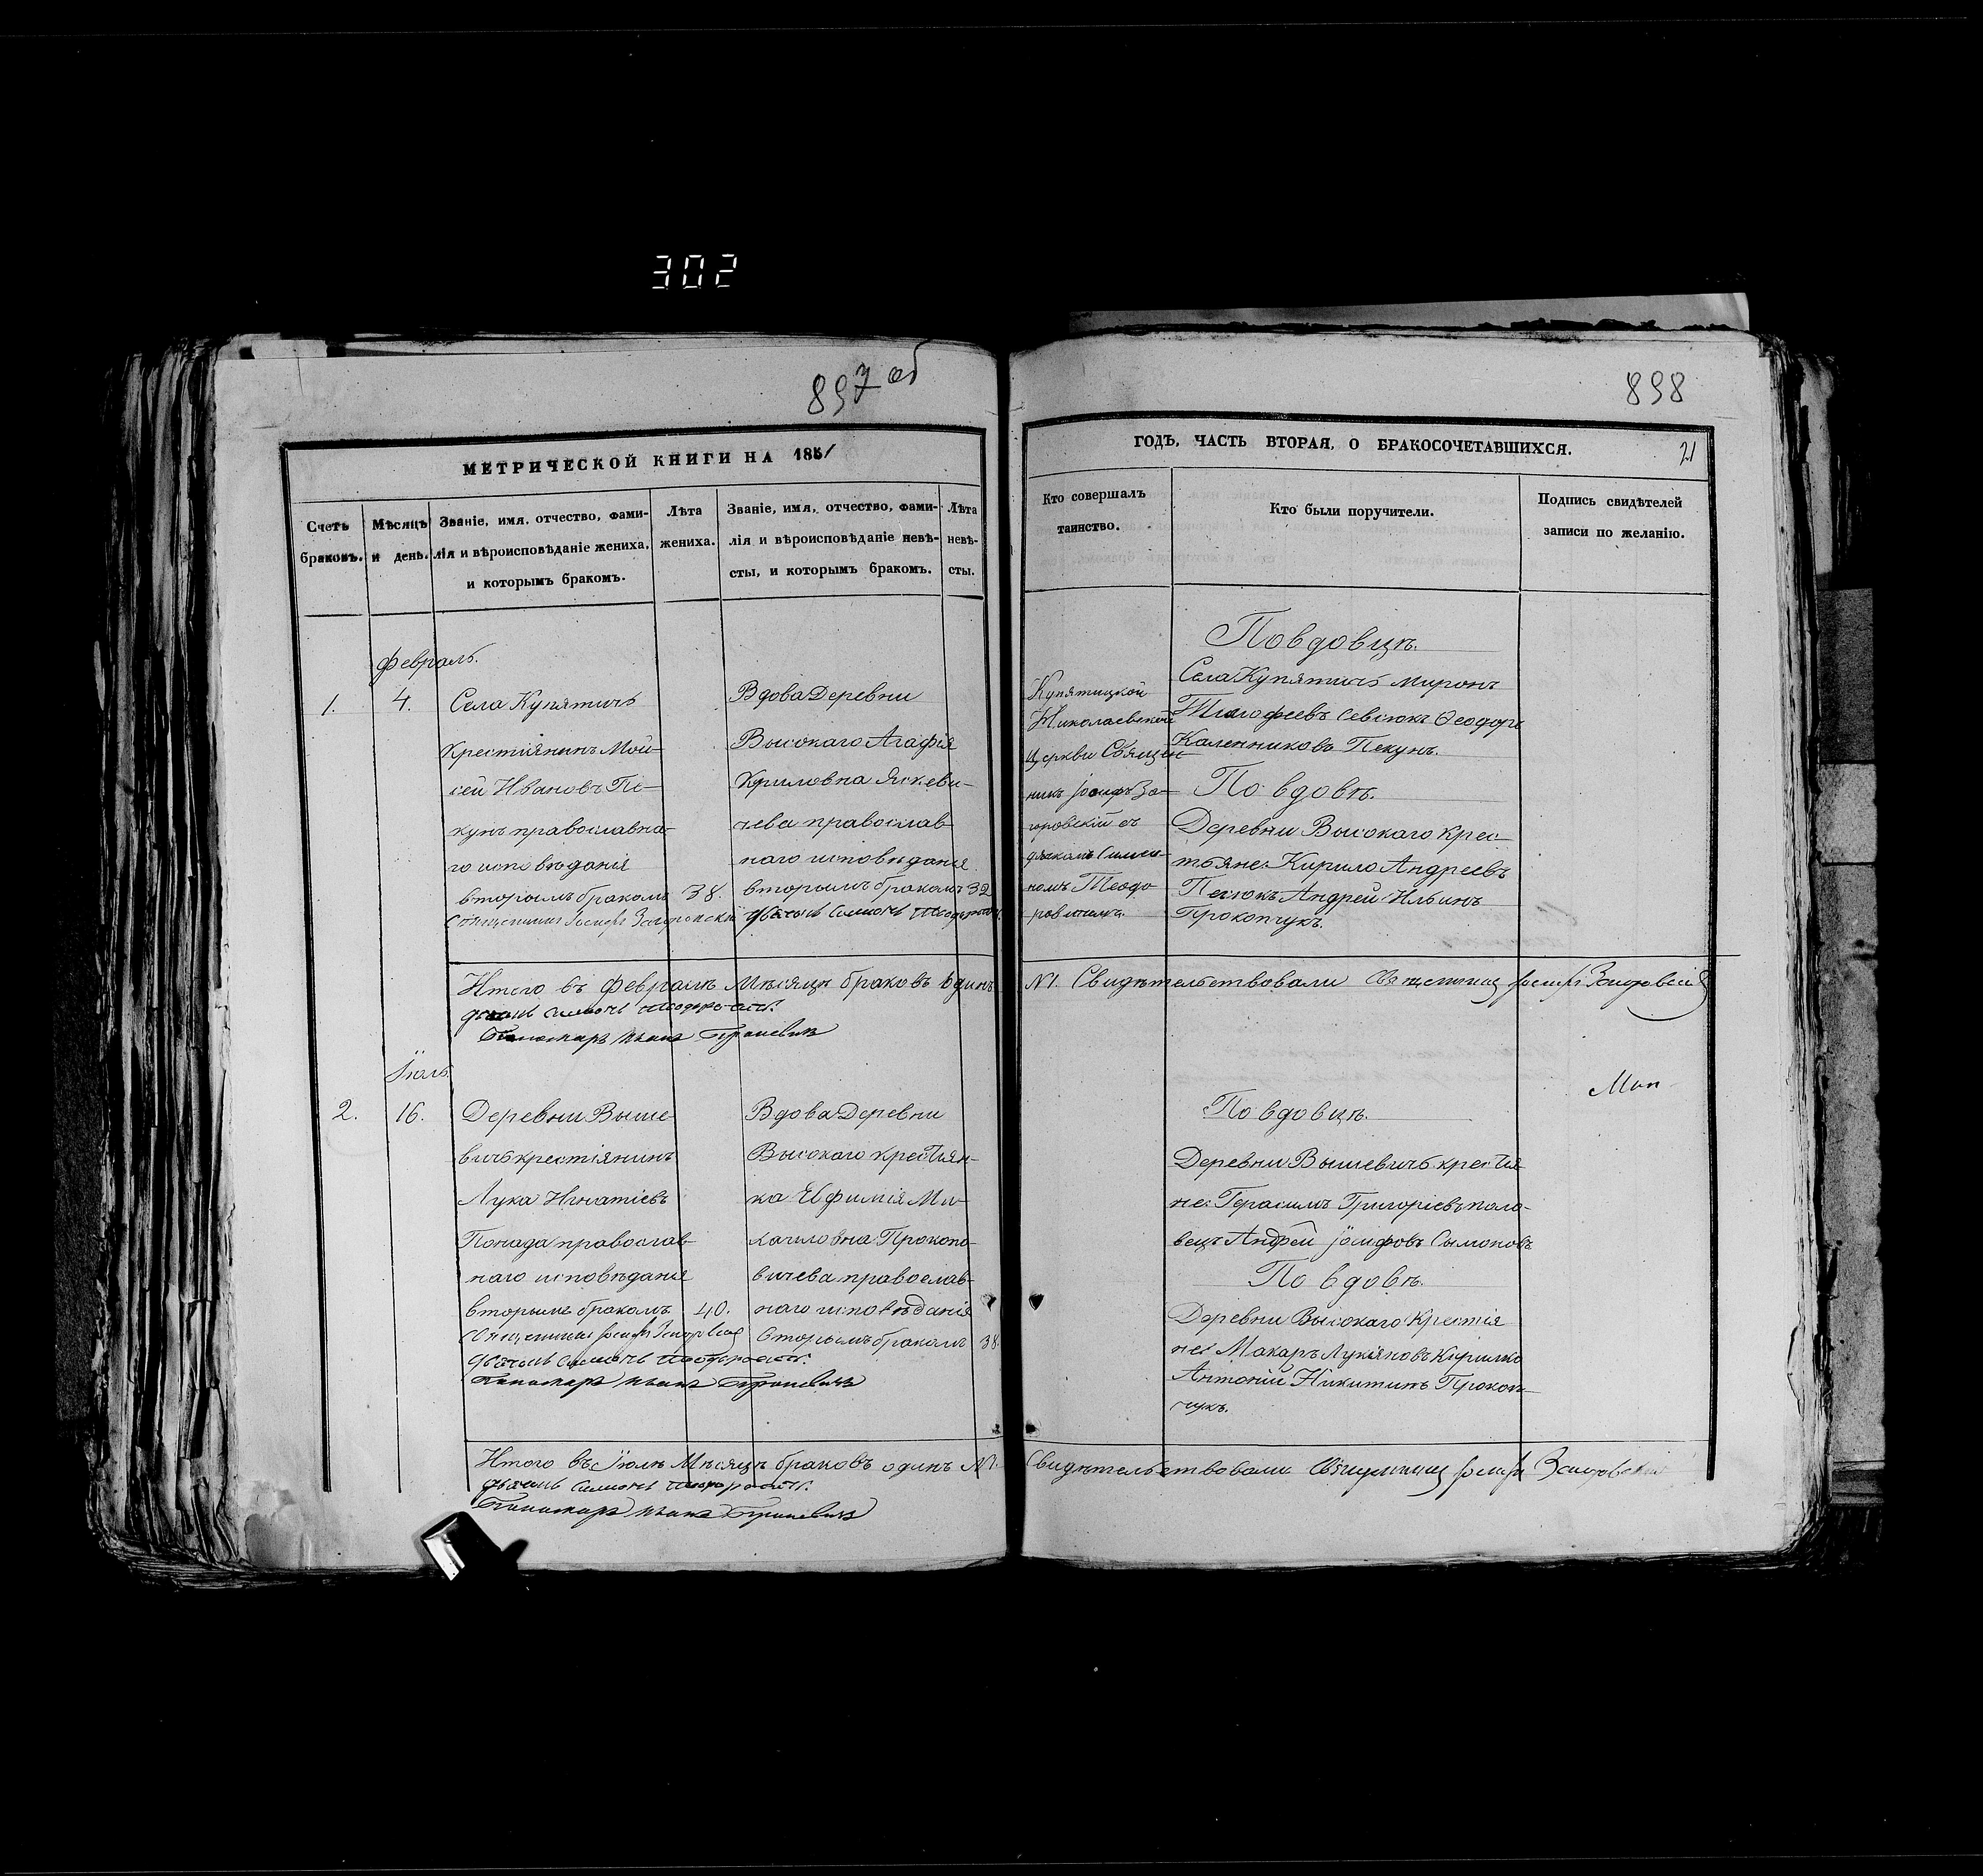 302
897 об
МЕТРИЧЕСКОЙ КНИГИ НА 1851
Счетъ браковъ.
Мѣсяцъ и день.
Званіе, имя, отчество, фами-
лія и вѣроисповѣданіе жениха,
и которымъ бракомъ.
Лѣта
жениха.
Званіе, имя, отчество, фами-
лія и вѣроисповѣданіе невѣ-
сты, и которымъ бракомъ.
Лѣта
невѣ-
сты.
Февраль.
1.
4.
Села Купятичъ
Крестіянинъ Мои-
сей Ивановъ Пе-
кунъ православна-
го исповѣданія
вторымъ бракомъ
38.
Священникъ Іосифъ Загоровскій
Вдова Деревни
Высокаго Агафія
Кириловна Яскеви-
чева православ-
наго исповѣданія
вторымъ бракомъ
32
Итого въ Февралѣ Мѣсяцѣ браковъ одинъ
Іюль.
2.
16.
Деревни Выше-
вичъ крестіянинъ
Лука Игнатіевъ
Понада православ-
наго исповѣданія
вторымъ бракомъ
40.
Вдова Деревни
Высокаго крестіян-
ка Евфимія Ми-
хаиловна Прокопо-
вичева православ-
наго исповѣданія
вторымъ бракомъ
38.
Итого въ Іюлѣ Мѣсяцѣ браковъ одинъ №1.
898
ГОДЪ, ЧАСТЬ ВТОРАЯ, О БРАКОСОЧЕТАВШИХСЯ.
21
Кто совершалъ
таинство.
Кто были поручители.
Подпись свидѣтелей
записи по желанію.
Купятицкой
Николаевской
Церкви Священ-
никъ Іосифъ За-
горовскій съ
дьякомъ Симео-
номъ Теодо-
ровичемъ.
По вдовцѣ.
Села Купятичъ Миронъ
Тимофеевъ Севсюкъ Ѳеодоръ
Каленниковъ Пекунъ.
По вдовѣ.
Деревни Высокаго Крес-
тьяне: Кирило Андреевъ
Песюкъ Андрей Ильинъ
Прокопчукъ.
№1. Свидѣтельствовали Священникъ Іосифъ Загоровскій
По вдовцѣ.
Деревни Вышевичъ крестія-
не: Герасимъ Григоріевъ поло-
вецъ Андрей Іосифовъ Сымоновъ
По вдовѣ.
Деревни Высокаго Крестія
не: Макаръ Лукіяновъ Кирилко
Антоній Никитинъ Прокоп-
чукъ.
Свидѣтельствовали Священникъ Іосифъ Загоровскій